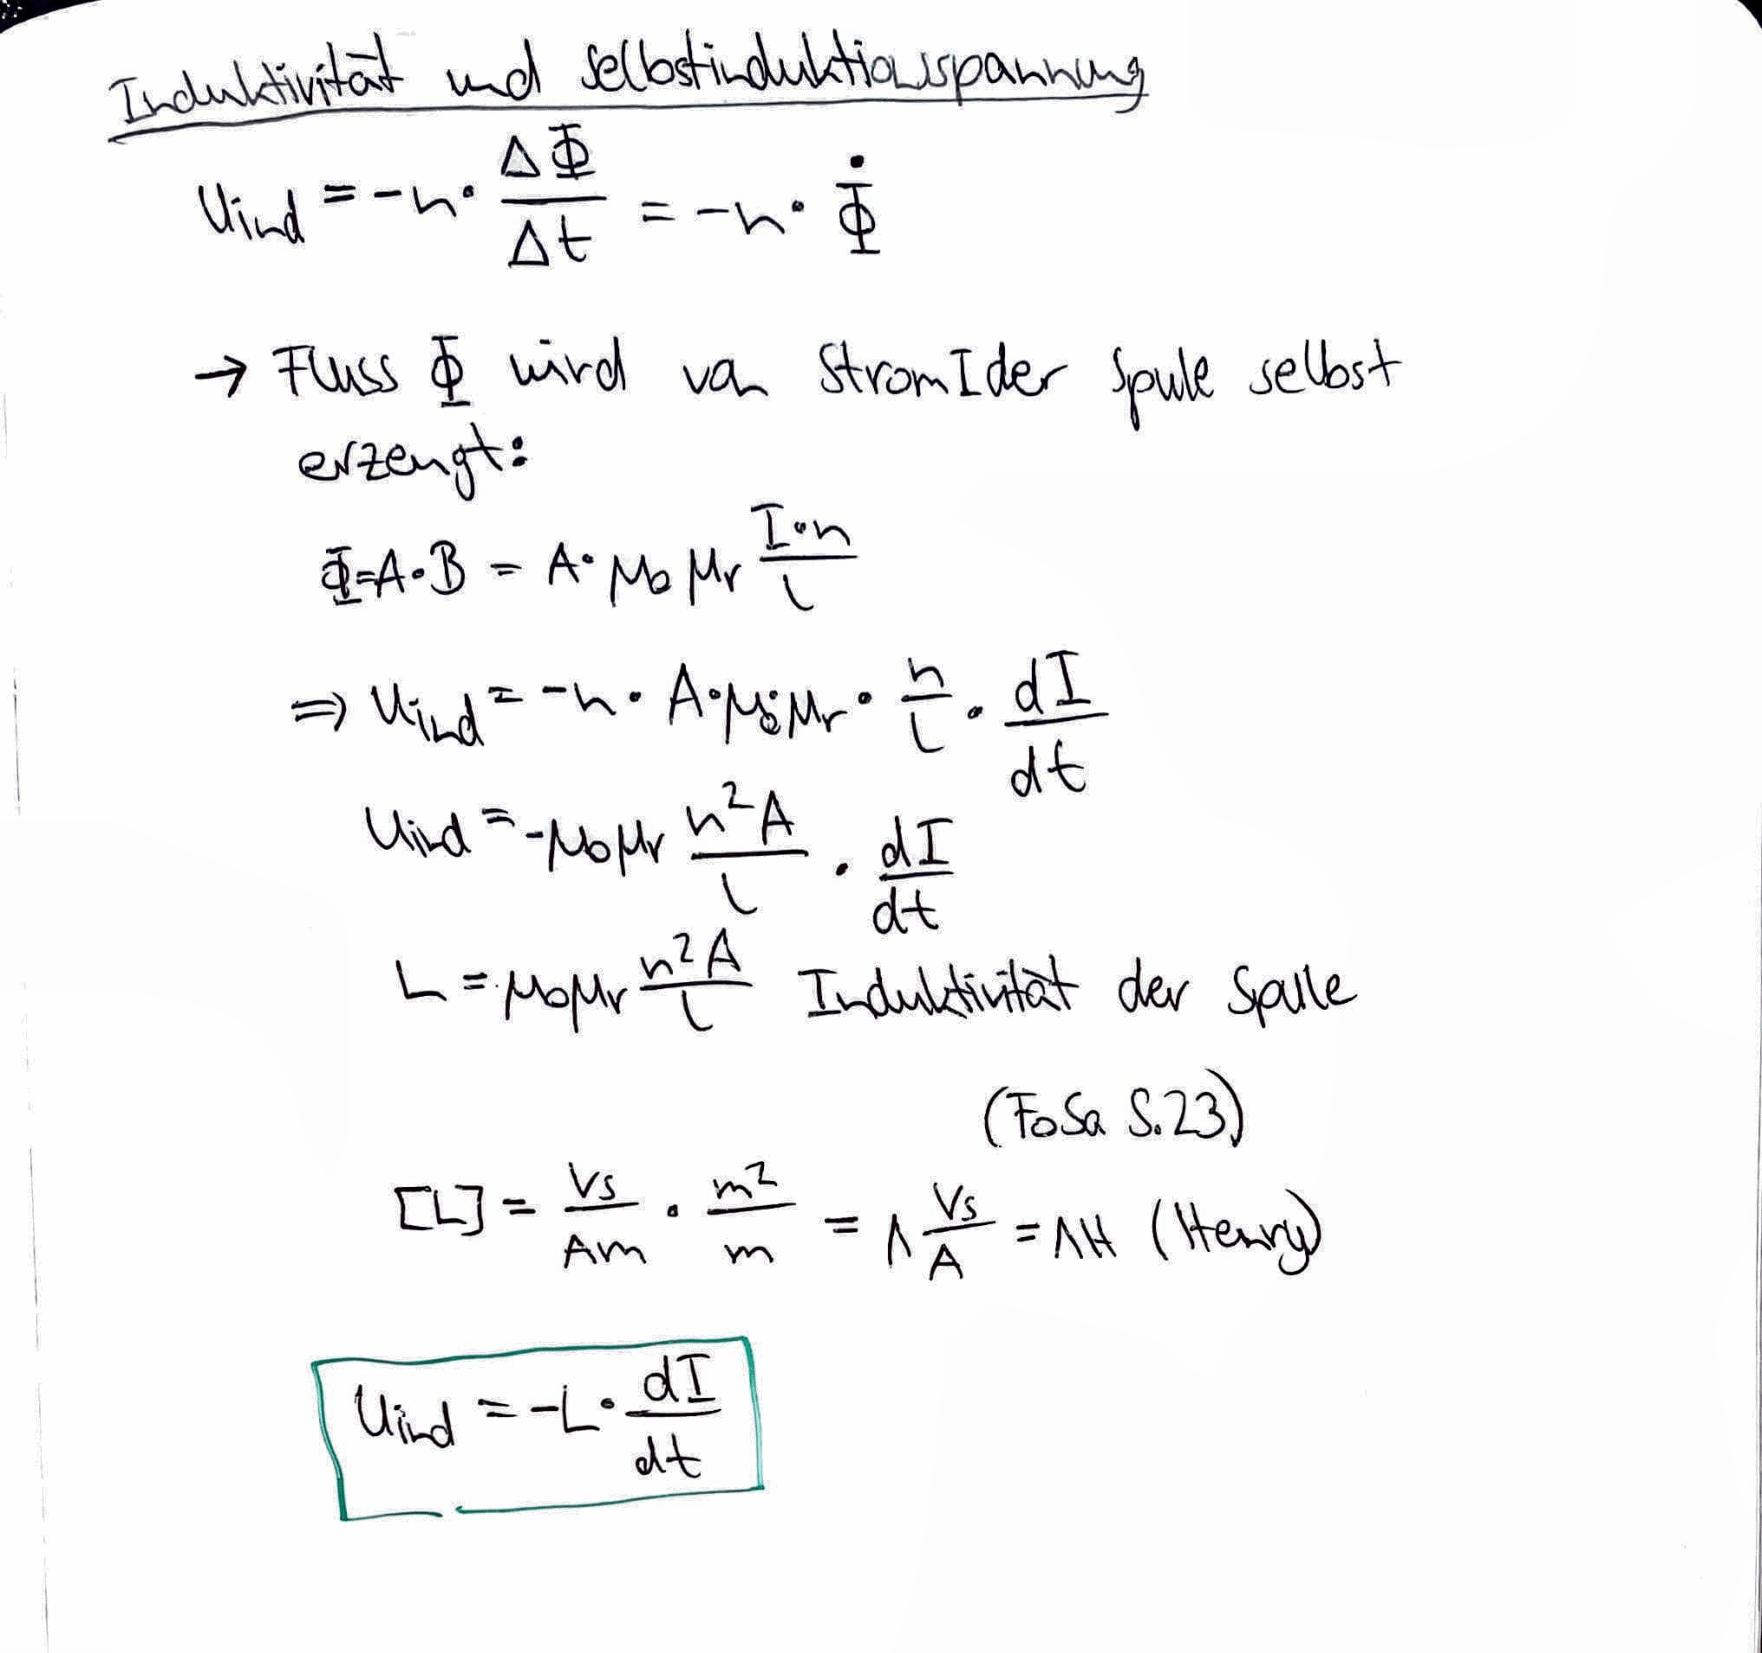 Induktivität und Selbstinduktionsspannung
Uind = -n · ΔΦ/Δt = -n · Φ̇
→ Fluss Φ wird von Strom I der Spule selbst
erzeugt:
Φ = A · B = A · μ₀ μr I·n/l
⇒ Uind = -n · A · μ₀ · μr · n/l · dI/dt
Uind = -μ₀ μr n²A/l · dI/dt
L = μ₀ μr n²A/l Induktivität der Spule
(FoSa S.23)
[L] = Vs/Am · m²/m = 1 Vs/A = 1H (Henry)
Uind = -L · dI/dt